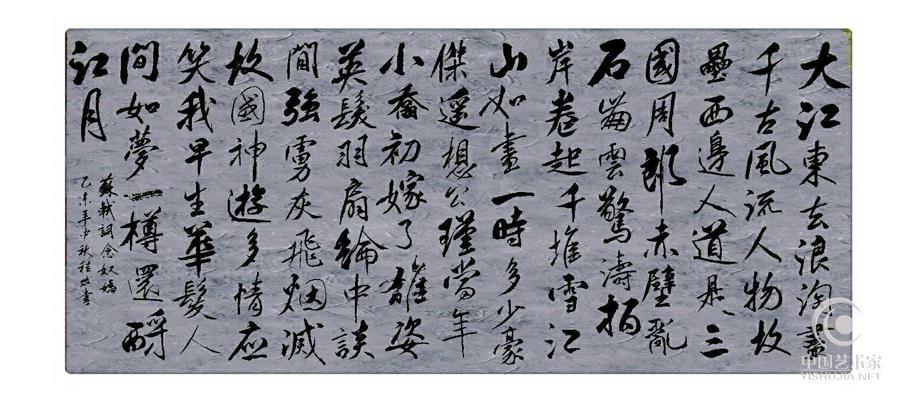 大江東去浪淘盡
千古風流人物故
壘西邊人道是三
國周郎赤壁亂
石崩雲驚濤拍
岸卷起千堆雪江
山如畫一時多少豪
傑遥想公瑾當年
小喬初嫁了雄姿
英髮羽扇綸中談
間強虜灰飛烟滅
故國神遊多情应
笑我早生華髮人
间如夢一樽還酹
江月
蘇軾詞念奴嬌
乙未年中秋程書
中国艺术家
YISHUJIA.NET